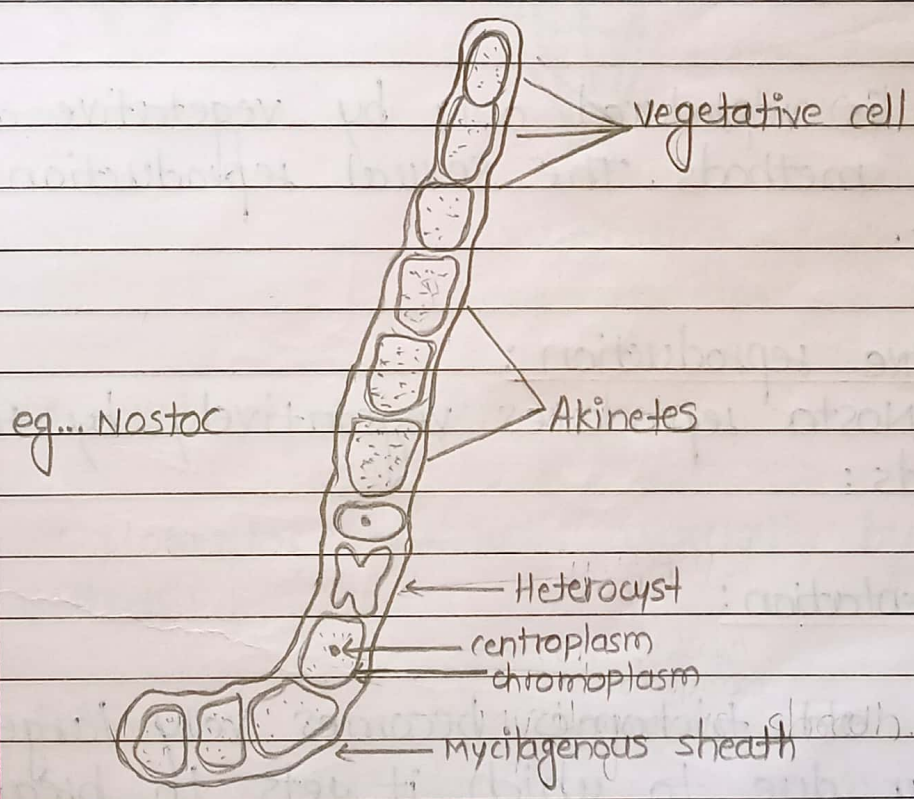 Vegetative cell
Akinetes
eg... Nostoc
Heterocyst
centroplasm
chromoplasm
Mycilagenous sheath